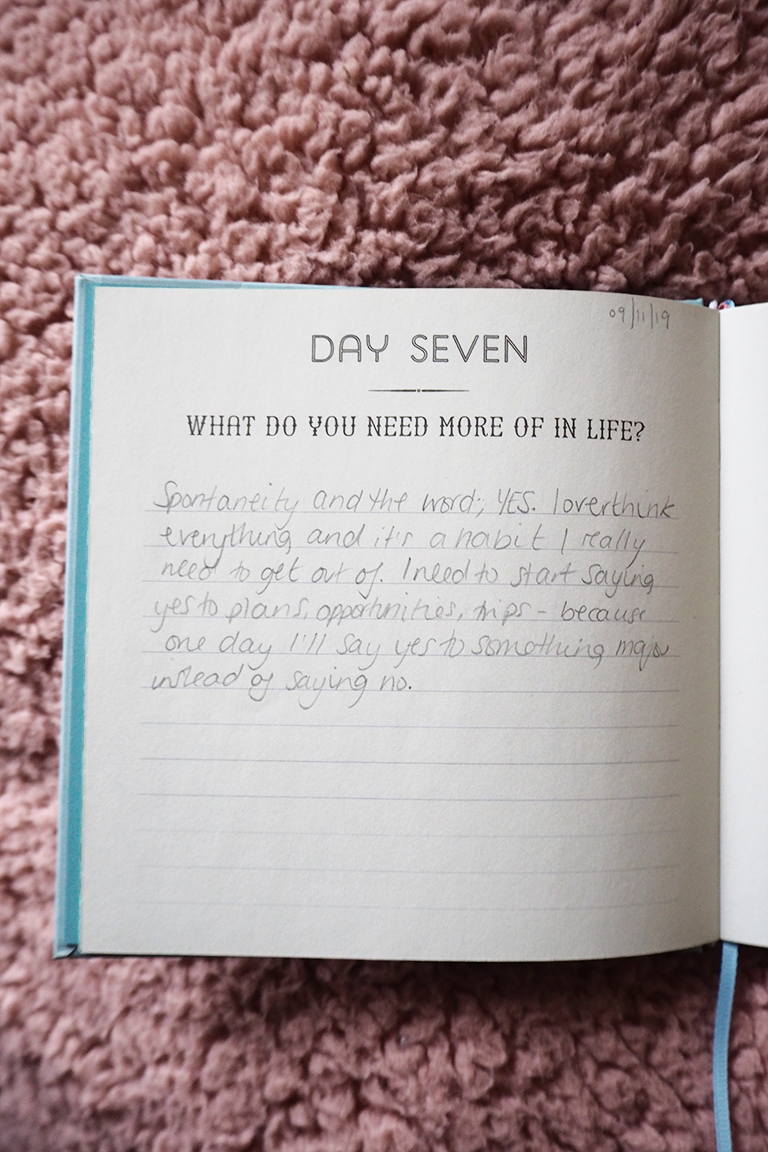 09/11/19
DAY SEVEN
WHAT DO YOU NEED MORE OF IN LIFE?
Spontaneity and the word; YES. I overthink
everything and it's a habit I really
need to get out of. I need to start saying
yes to plans, opportunities, trips - because
one day I'll say yes to something major
instead of saying no.